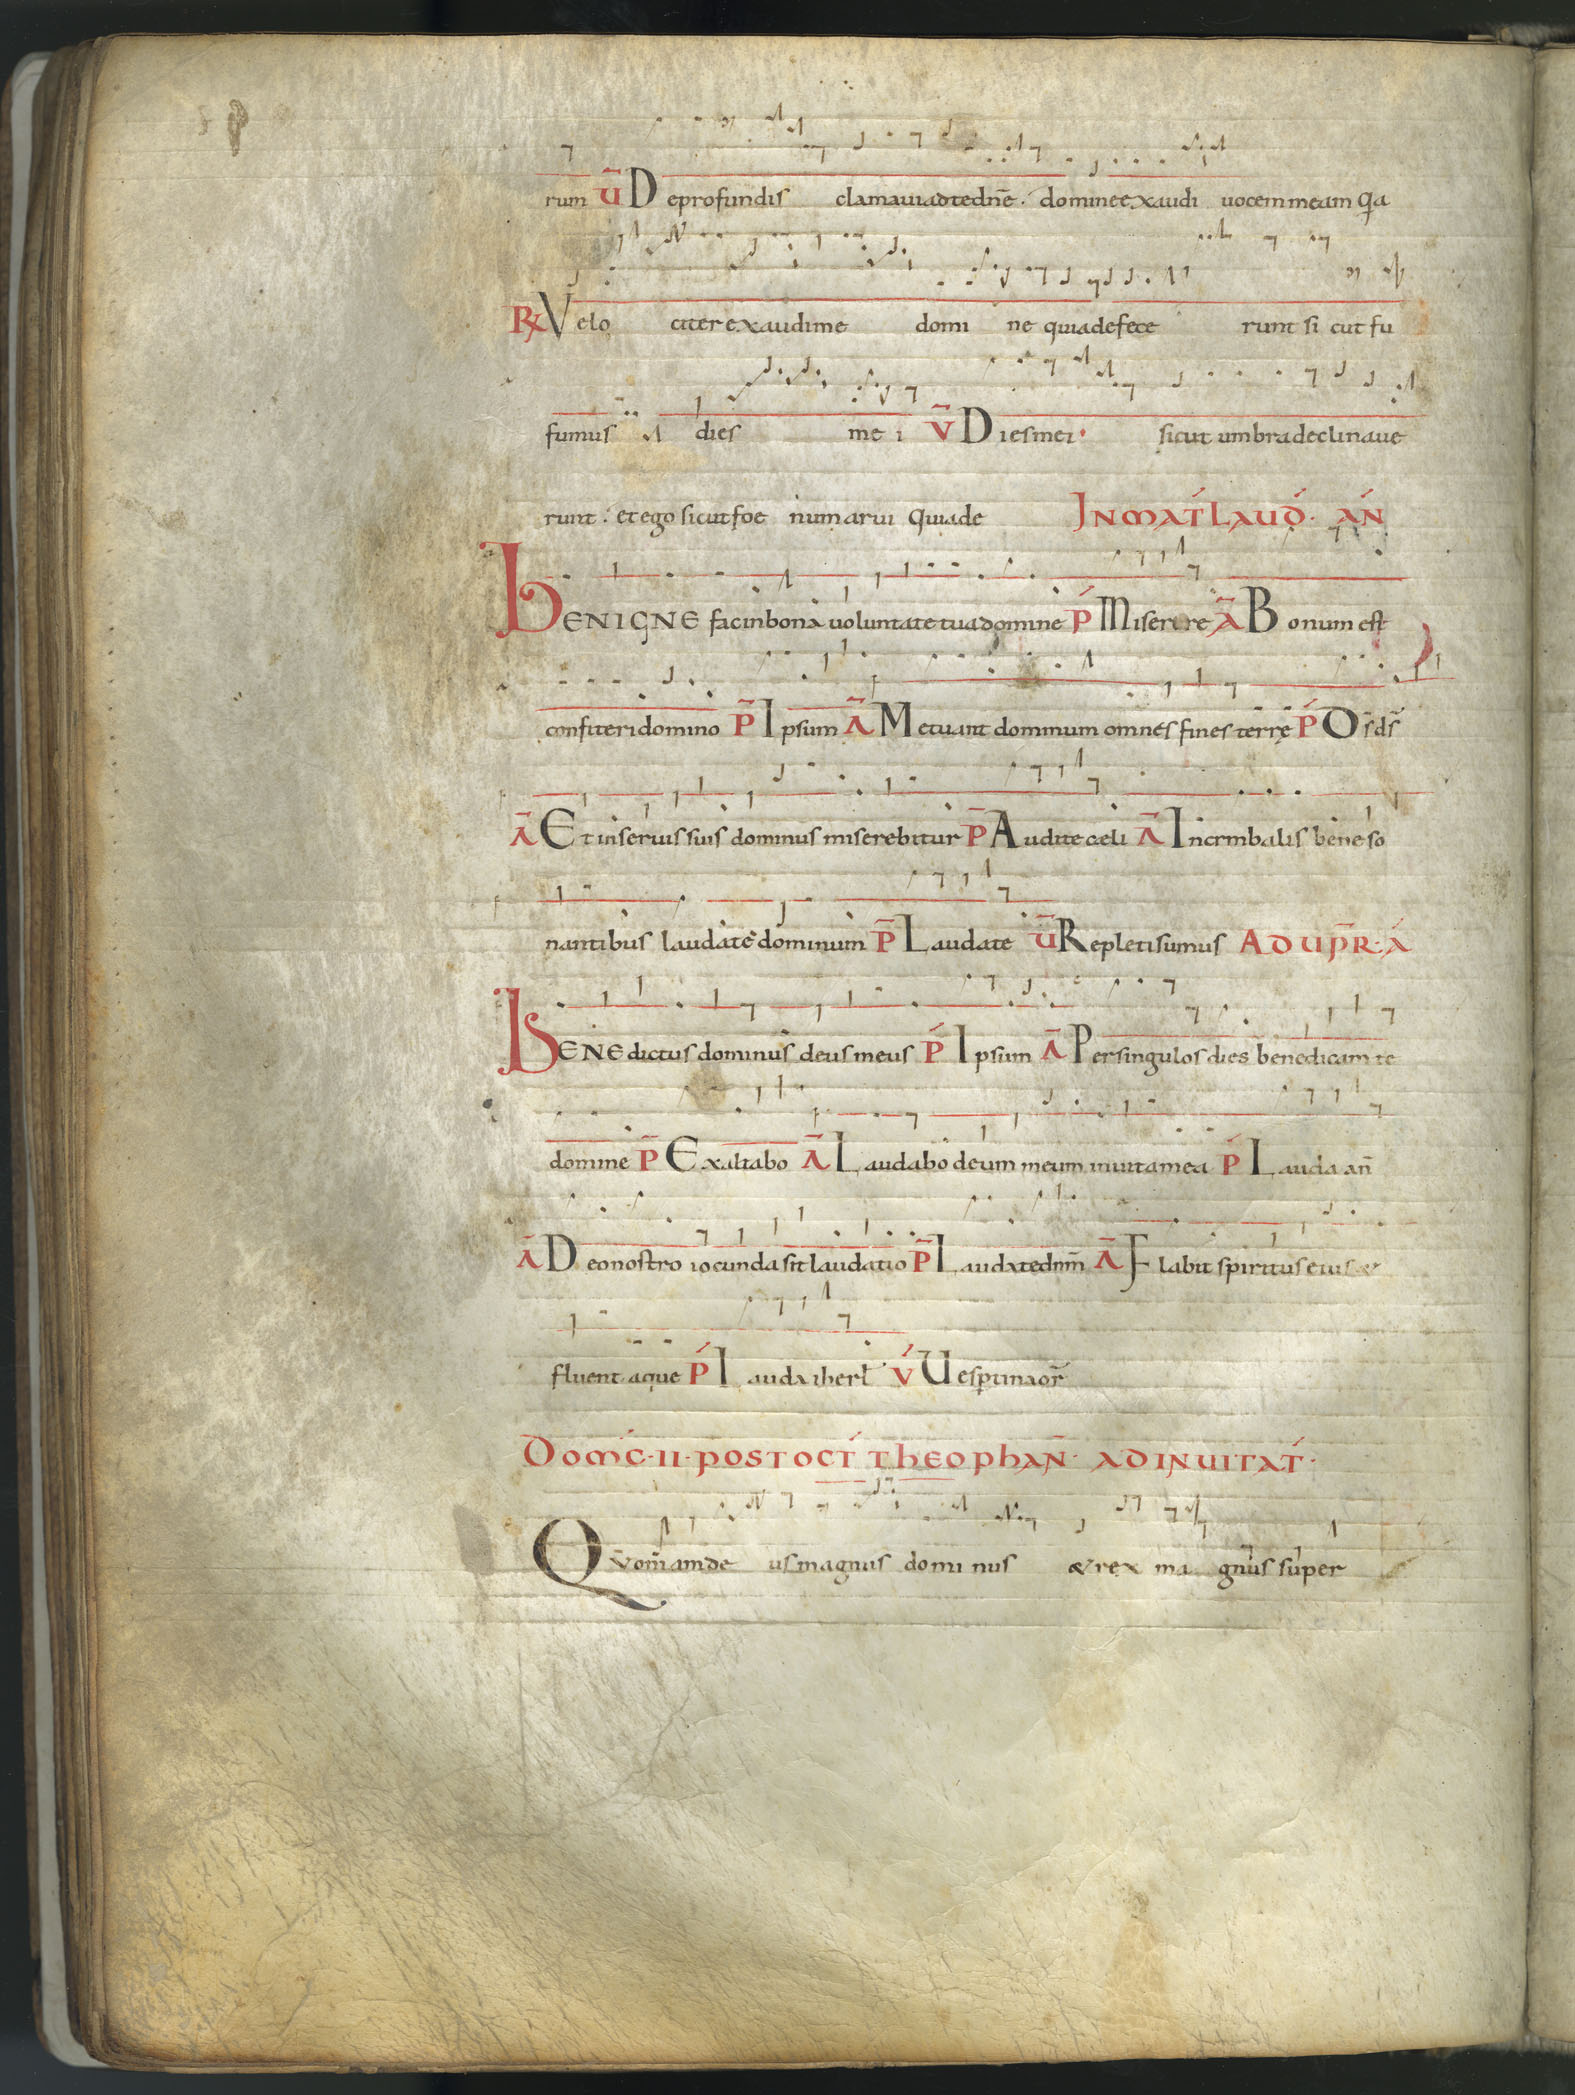 rum V̄ De profundis clamavi ad te dnē. domine exaudi vocem meam Qia
R℣ Velociter exaudi me domine quia defecerunt sicut fu
fumus dies mei V̄ Dies mei sicut umbra declinave
runt. et ego sicut foenum arui Quia de IN MAT́ LAUD́. AŃ
BENIGNE fac in bona voluntate tua domine Ṕ Miserere Ā Bonum est
confiteri domino P̄ Ipsum Ā Metuant dominum omnes fines terrę Ṕ Os ds̄
Ā Et in servis suis dominus miserebitur P̄ Audite caeli Ā In cymbalis bene so
nantibus laudate dominum P̄ Laudate Ū Repleti sumus AD UP̄R. Á
BENEdictus dominus deus meus Ṕ Ipsum Ā Per singulos dies benedicam te
domine P̄ Exaltabo Ā Laudabo deum meum in vita mea Ṕ Lauda an̄
Ā Deo nostro iocunda sit laudatio P̄ Laudate dnm̄ Ā Flabit spiritus eius &
fluent aque Ṕ Lauda iherl̄ V́ Uespertina or̄
DOMC̄. II. POST OCT́ THEOPHAN̄. AD INUITAT́.
Qvoniam deus magnus dominus & rex magnus super